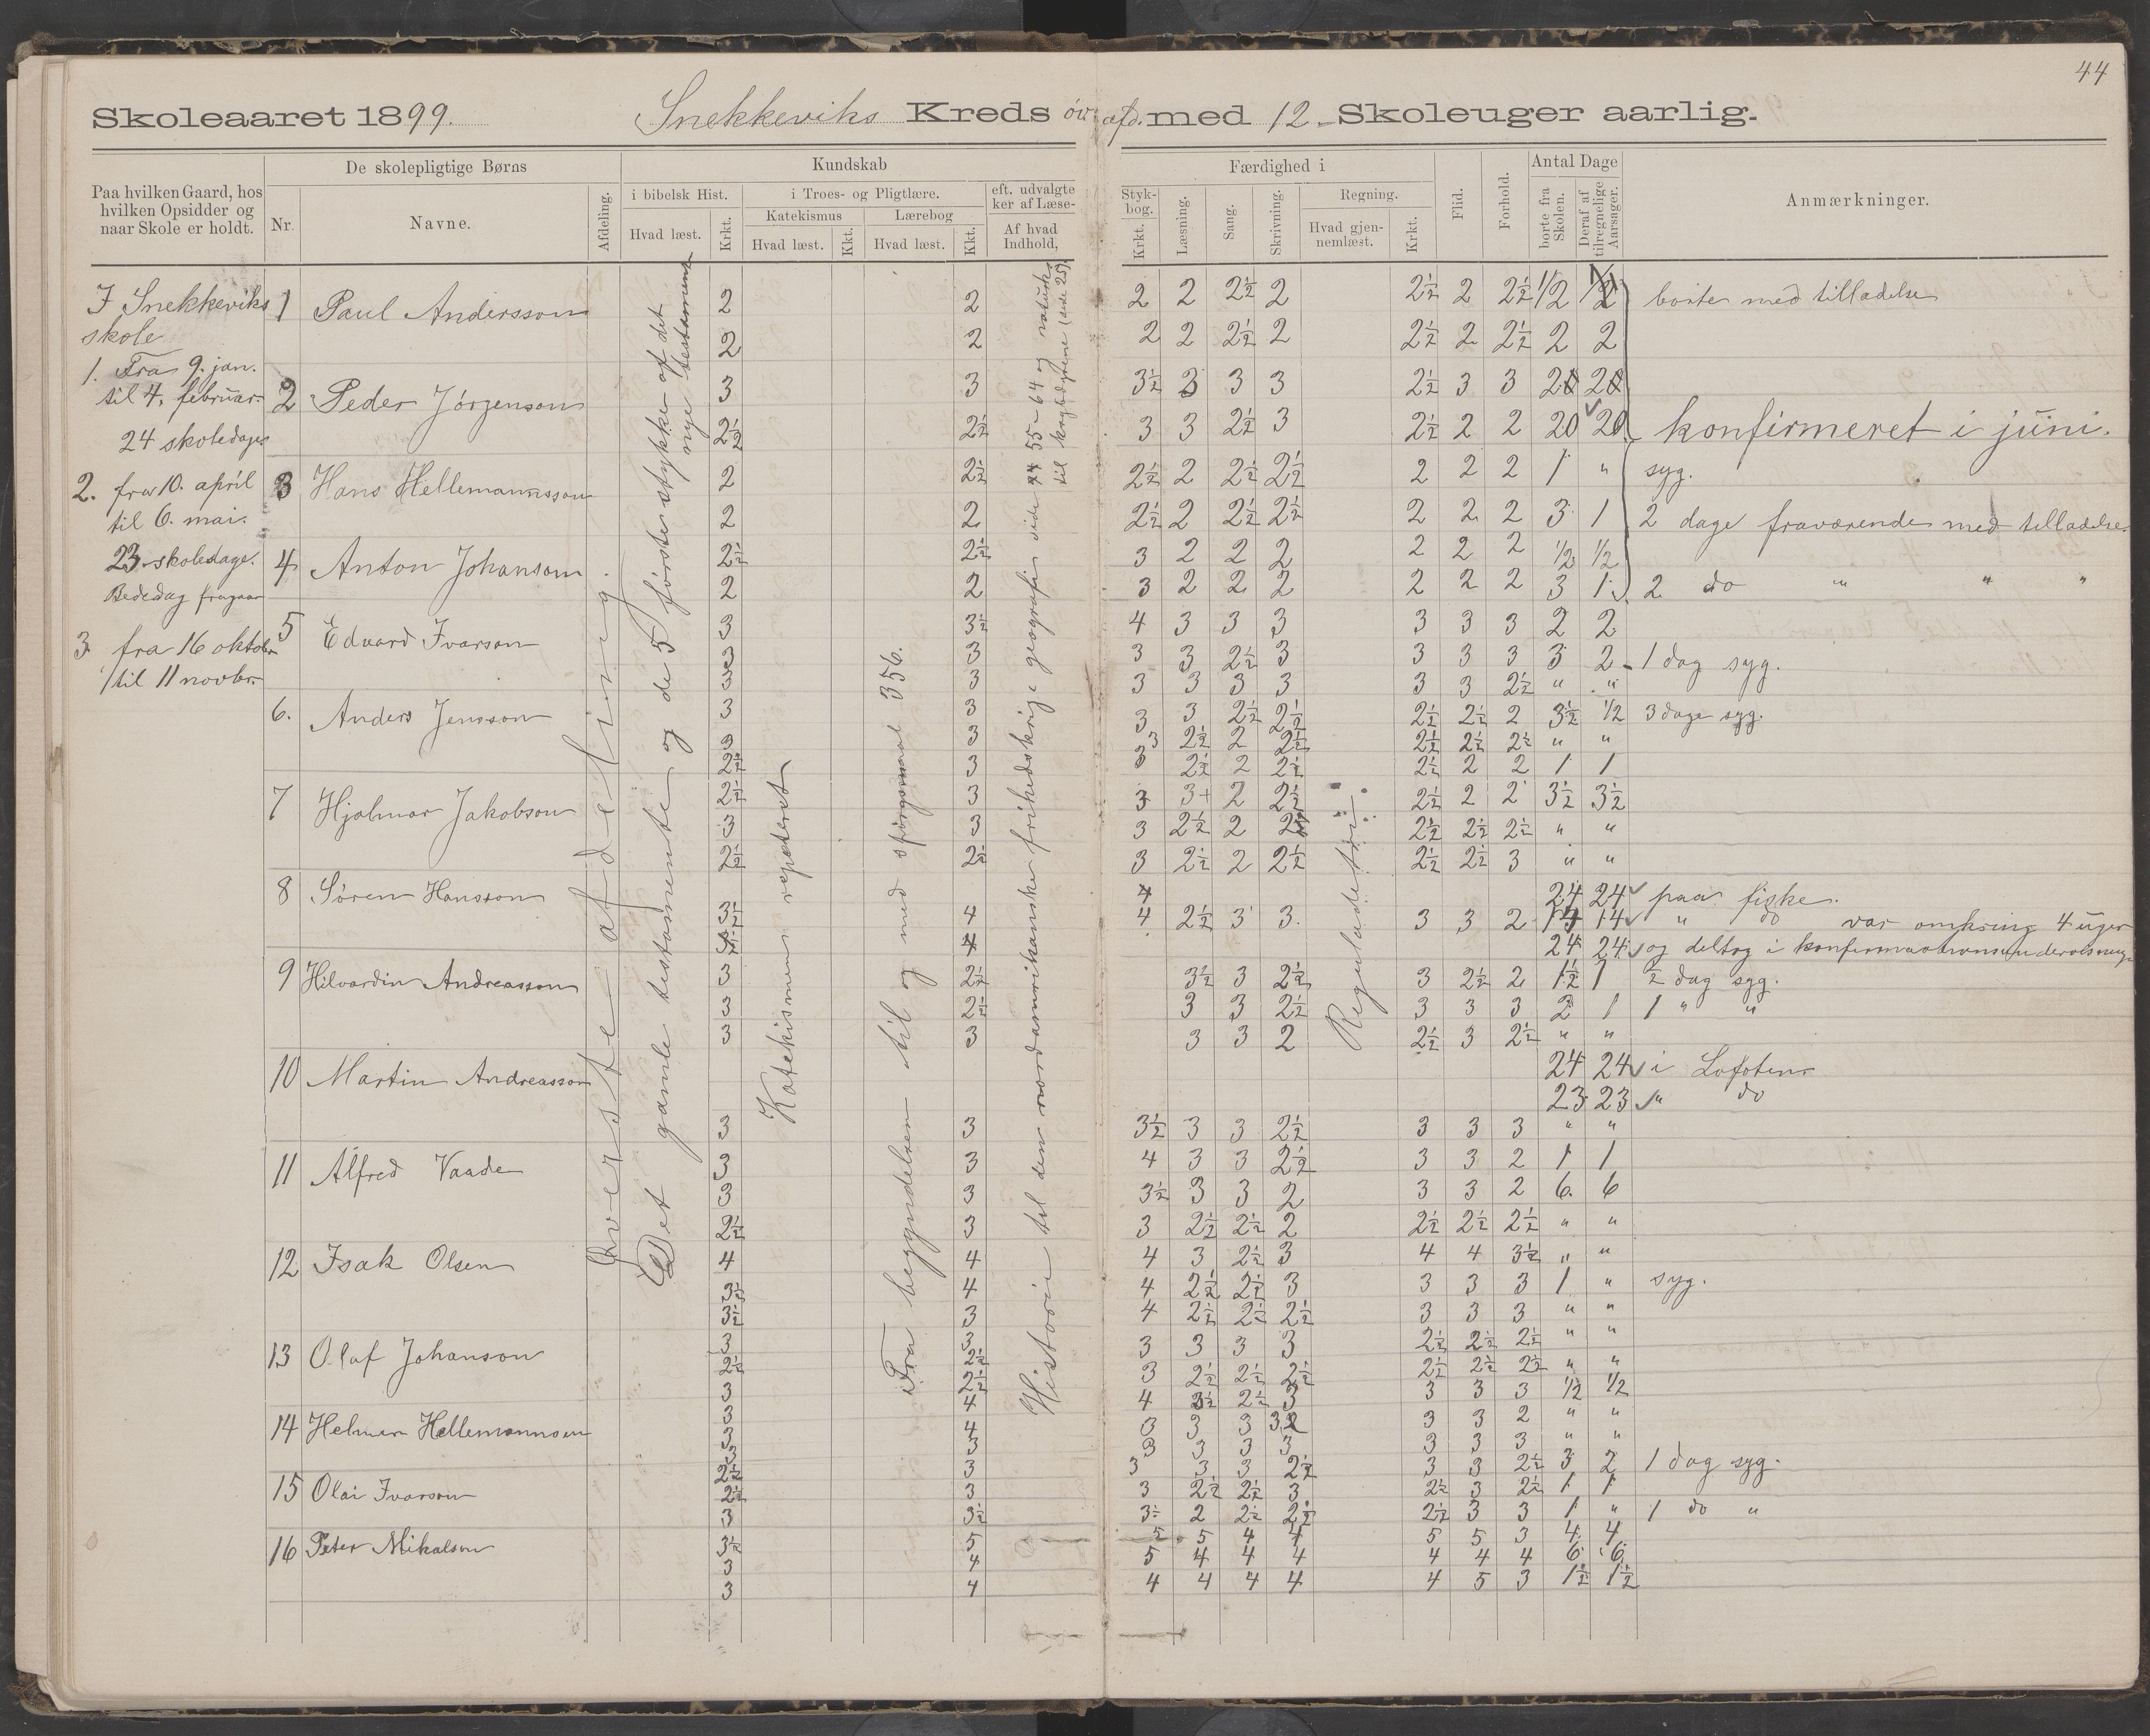 44
Skoleaaret 1899. Snekkeviks Kreds øv. afd. med 12 Skoleuger aarlig.
Paa hvilken Gaard, hos hvilken Opsidder og naar Skole er holdt.
De skolepligtige Børns
Nr. Navne.
Afdeling.
Kundskab
i bibelsk Hist.
Hvad læst. Krkt.
i Troes- og Pligtlære.
Katekismus Lærebog
Hvad læst. Kkt. Hvad læst. Kkt.
eft. udvalgte
ker af Læse-
Af hvad
Indhold,
Færdighed i
Styk-
bog.
Krkt. Læsning. Sang. Skrivning.
Regning.
Hvad gjen-
nemlæst. Krkt.
Flid. Forhold.
Antal Dage
borte fra Skolen. Deraf af tilregnelige Aarsager.
Anmærkninger.
I Snekkeviks
skole
1. Fra 9. jan.
til 4. februar
24 skoledage
2. fra 10. april
til 6. mai.
23 skoledage.
Bededag fragaar
3. fra 16 oktober
til 11 novbr.
Øverste afdeling.
Det gamle testamente og de 5 første stykker af det
nye testamente
Katekismen repeteret
Fra begyndelsen til og med spørgsmaal 356.
Historie til den nordamrikanske frihedskrig geografi
Regula de tri
1 Paul Andersson 2 2 2 2 2½ 2 2½ 2 2½ 1/2 borte med tilladelse
2 2 2 2 2½ 2 2½ 2 2½ 2 2
2 Peder Jörgenson 3 3 3½ 3 3 3 2½ 3 3
2½ 2½ 3 3 2½ 3 2½ 2 2 20 20 konfirmeret i juni.
3 Hans Hellemannsson 2 2½ 2½ 2 2½ 2½ 2 2 2 1 " syg.
2 2 2½ 2 2½ 2½ 2 2 2 3 1 2 dage fraværende med tilladelse
4 Anton Johanson 2½ 2½ 3 2 2 2 2 2 2 1/2 1/2
2 2 3 2 2 2 2 2 2 3 1 2 do " " "
5 Edvard Ivarson 3 3½ 4 3 3 3 3 3 3 2 2
3 3 3 3 2½ 3 3 3 3 3 2 1 dag syg.
3 3 3 3 3 3 3 3 2½ " "
6. Anders Jensson 3 3 3 3 2½ 2½ 2½ 2½ 2 3½ 1/2 3 dage syg.
3 3 3 2½ 2 2½ 2½ 2½ 2½ " "
2½ 3 3 2½ 2 2½ 2½ 2 2 1 1
7 Hjalmar Jakobson 2½ 3 3 3+ 2 2½ 2½ 2 2 3½ 3½
3 3 3 2½ 2 2½ 2½ 2½ " "
2½ 2½ 3 2½ 2 2½ 2½ 2½ 3 " "
8 Søren Hansson 24 24 paa fiske.
3½ 4 4 2½ 3 3 3 3 2 14 14 " do var omkring 4 uger
24 24 og deltog i konfirmationsundervisning
9 Hilvardin Andreasson 3 2½ 3½ 3 2½ 3 2½ 2 1½ 1 ½ dag syg.
3 2½ 3 3 2½ 3 3 3 2 1 1 " "
3 3 3 3 2 2½ 3 2½ " "
10 Martin Andreasson 24 24 i Lofoten
23 23 " do
3 3 3½ 3 3 2½ 3 3 3 " "
11 Alfred Vaade 3 3 4 3 3 2½ 3 3 2 1 1
3 3 3½ 3 3 2 3 3 2 6 6
2½ 3 3 2½ 2½ 2 2½ 2½ 2½ " "
12 Isak Olsen 4 4 4 3 2½ 3 4 4 3½ " "
3½ 4 4 2½ 2½ 3 3 3 3 1 " syg.
3½ 3 4 2½ 2½ 2½ 3 3 3 " "
13 Olaf Johanson 3 3 3 3 3 3 2½ 2½ 2½ " "
2½ 2½ 3 2½ 2½ 2½ 2½ 2½ 2½ " "
3 2½ 4 3½ 2½ 3 3 3 3 1/2 1/2
14 Helmer Hellemannsen 3 4 3 3 3 3 3 2 " "
3 4 3 3 3 3 3 3 3 " "
3 3 3 3 3 2½ 3 3 2½ 3 2 1 dag syg.
15 Olai Ivarson 2½ 3 3 2½ 2½ 3 2½ 3 2½ 1 1
2½ 3 3½ 2 2½ 2½ 2½ 3 3 1 " 1 do "
3 3½
16 Peter Mikalson 3½ 5 5 5 4 4 5 5 3 4 4
3 4 5 4 4 4 4 4 4 6 6
3 4 4 4 4 4 4 5 3 1½ 1½